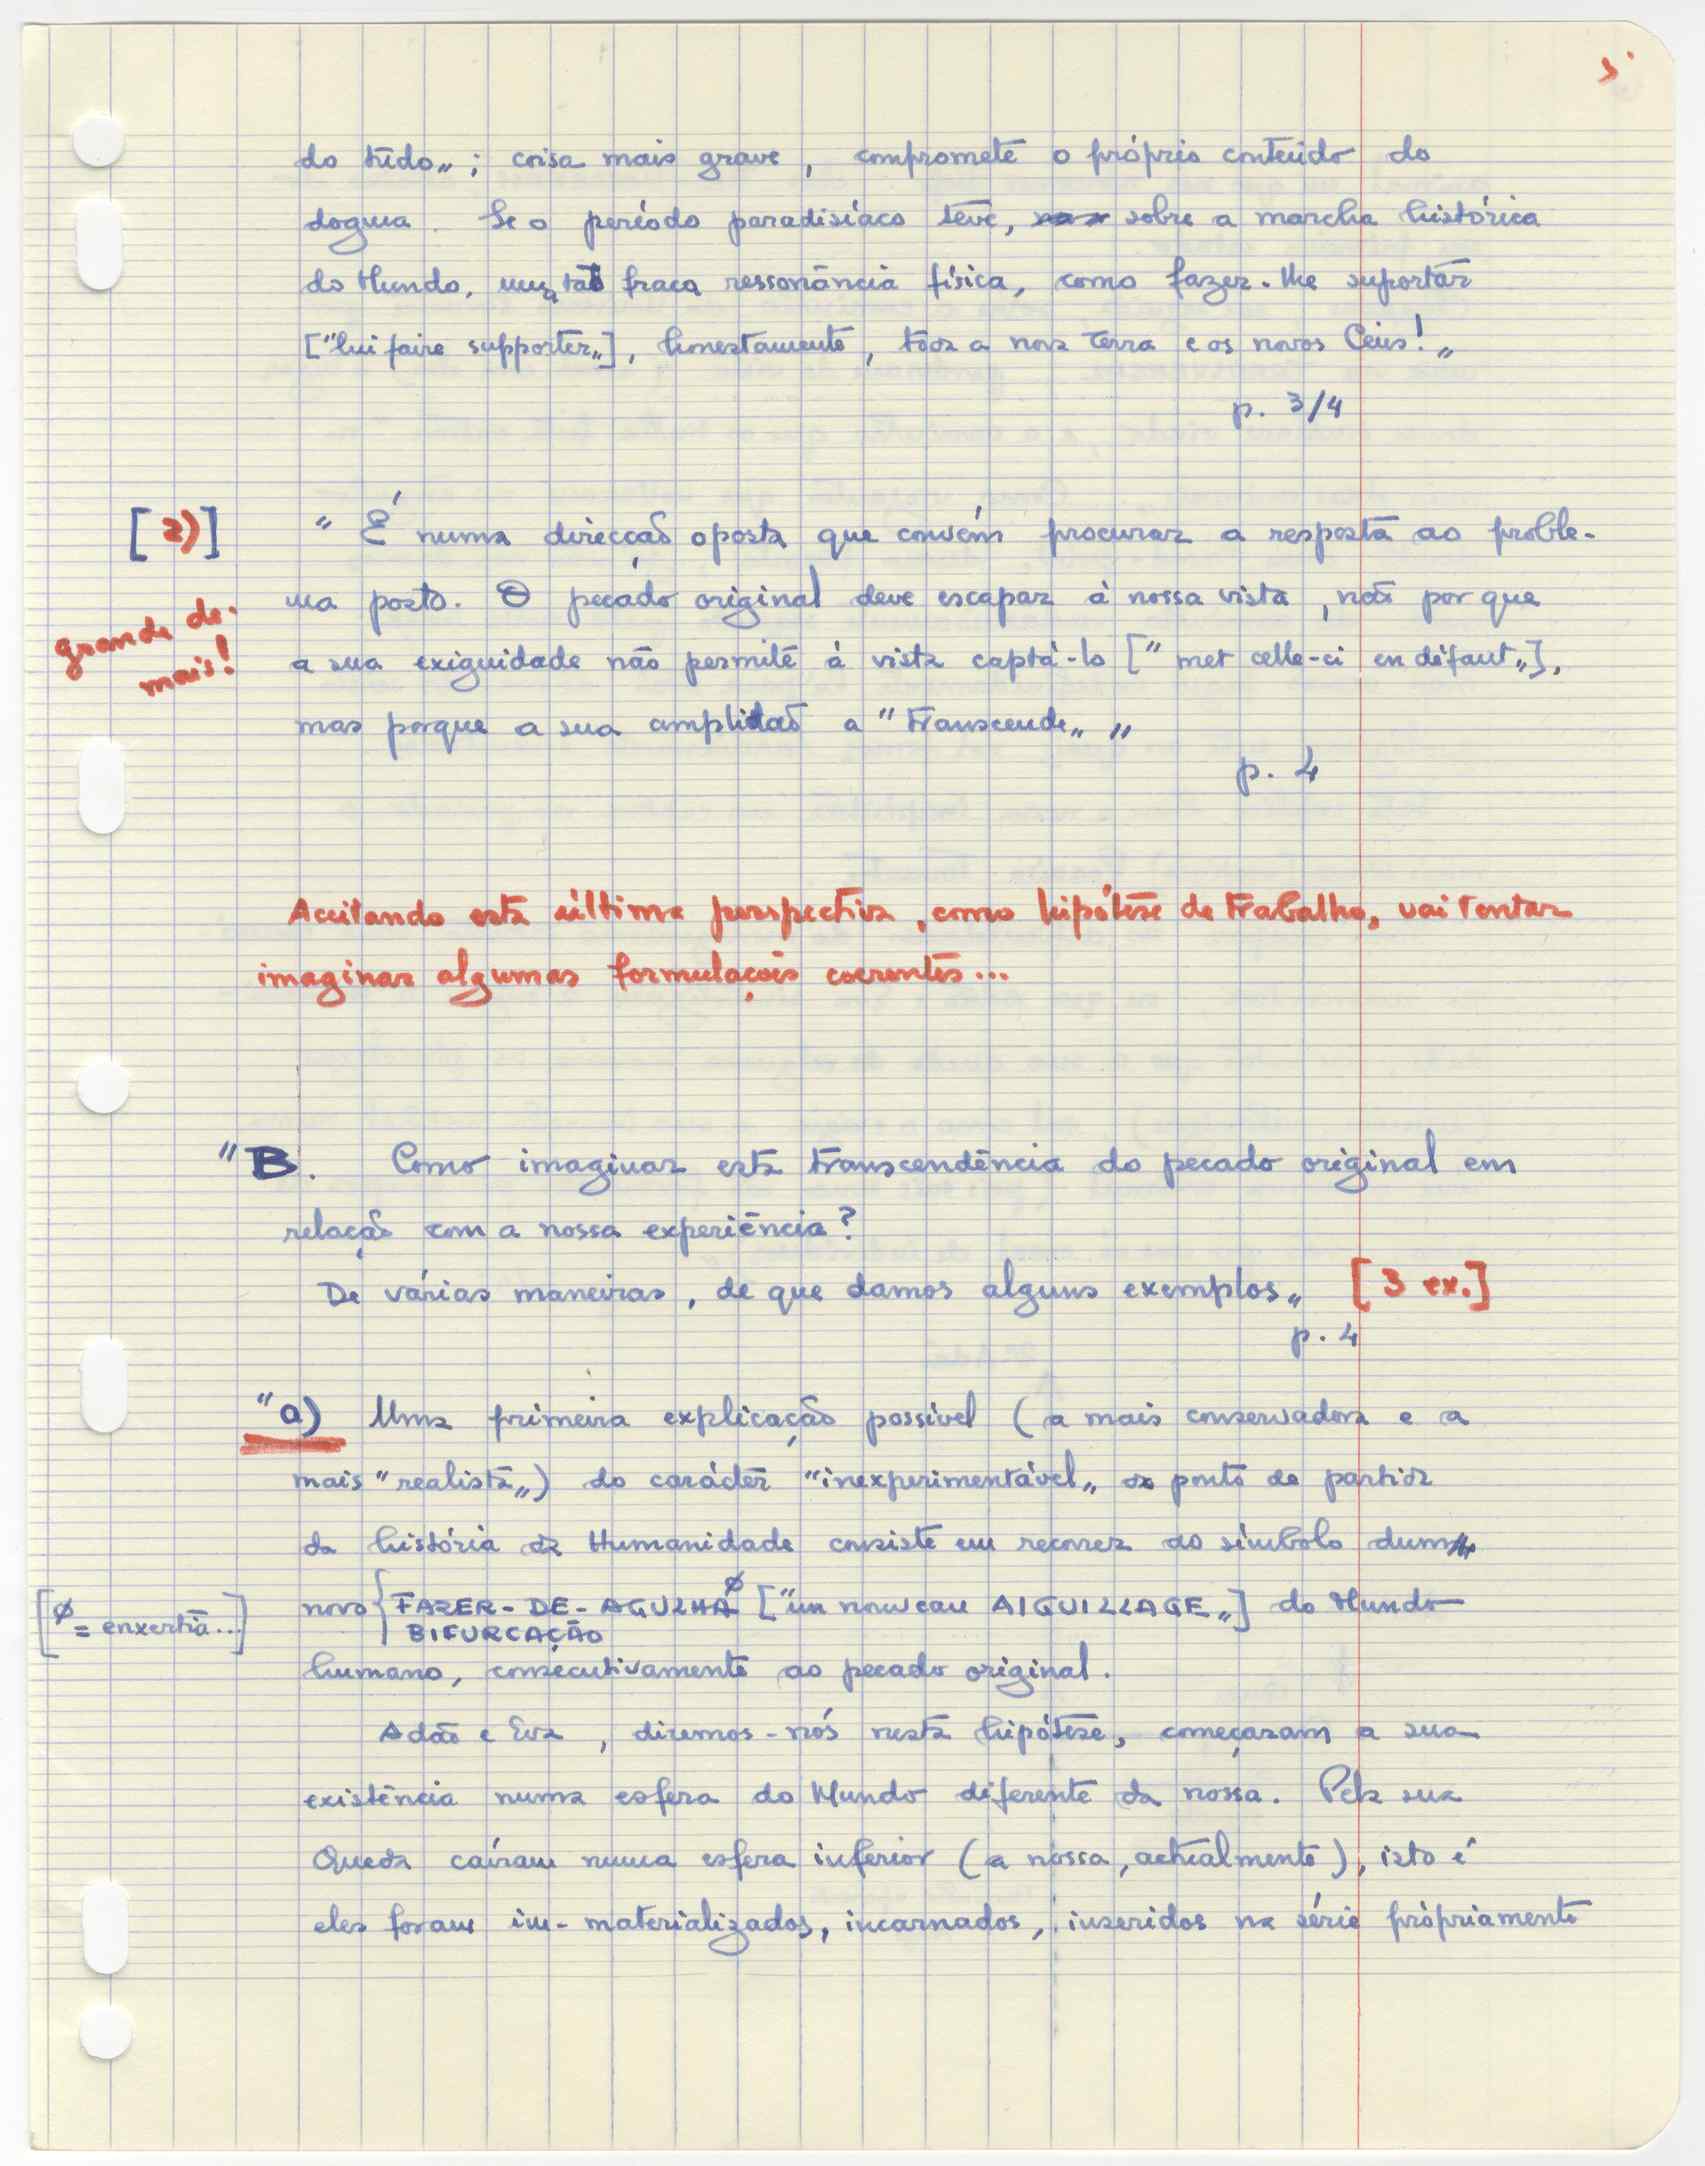 do tudo„ ; coisa mais grave, compromete o próprio conteúdo do
dogma. Se o período paradisíaco teve, sobre a marcha histórica
do Mundo, uma tão fraca ressonância física, como fazer-lhe suportar
["lui faire supporter„], honestamente, toda a nova Terra e os novos Céus!„
p. 3/4
[2)] " É numa direcção oposta que convém procurar a resposta ao proble-
ma posto. O pecado original deve escapar à nossa vista, não por que
grande de-
mais!
a sua exiguidade não permite à vista captá-lo ["met celle-ci en défaut„],
mas porque a sua amplidão a "transcende„ „
p. 4
Aceitando esta última perspectiva, como hipótese de trabalho, vai tentar
imaginar algumas formulações coerentes...
"B. Como imaginar esta transcendência do pecado original em
relação com a nossa experiência?
De várias maneiras, de que damos alguns exemplos„ [3 ex.]
p. 4
"a) Uma primeira explicação possível (a mais conservadora e a
mais "realista„) do carácter "inexperimentável„ do ponto de partida
da história da Humanidade consiste em recorrer ao símbolo dum
novo { FAZER-DE-AGULHA ø ["un nouveau AIGUILLAGE„] do Mundo
BIFURCAÇÃO
[ø = enxertia...]
humano, consecutivamente ao pecado original.
Adão e Eva, diremos-nós nesta hipótese, começaram a sua
existência numa esfera do Mundo diferente da nossa. Pela sua
Queda caíram numa esfera inferior (a nossa, actualmente), isto é
eles foram im-materializados, incarnados, inseridos na série pròpriamente